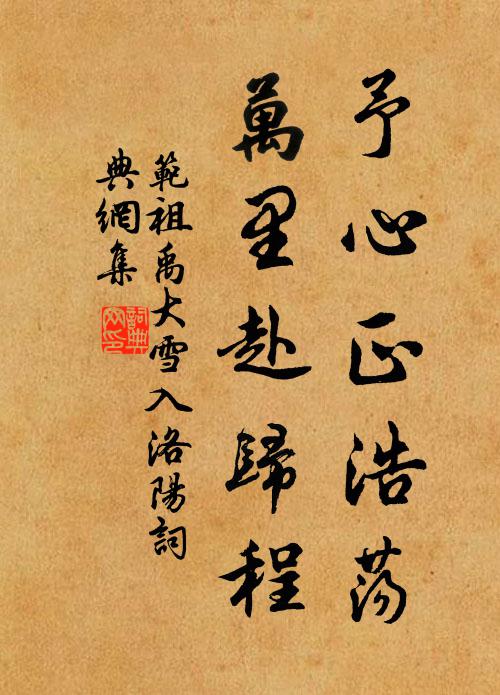 予心正浩蕩
萬里赴歸程
範祖禹大雪入洛陽詞
典網集
詞典網印